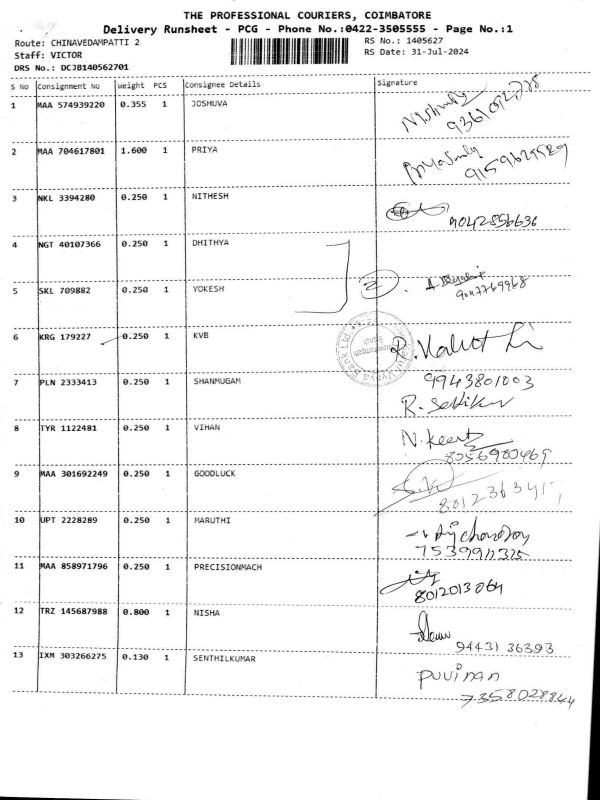 THE PROFESSIONAL COURIERS, COIMBATORE
Delivery Runsheet - PCG - Phone No.:0422-3505555 - Page No.:1
Route: CHINAVEDAMPATTI 2 RS No.: 1405627
Staff: VICTOR RS Date: 31-Jul-2024
DRS No.: DCJB140562701
S No Consignment No Weight PCS Consignee Details Signature
1 MAA 574939220 0.355 1 JOSHUVA
2 MAA 704617801 1.600 1 PRIYA
9159629589
3 NKL 3394280 0.250 1 NITHESH
9042856636
4 NGT 40107366 0.250 1 DHITHYA
2
5 SKL 709882 0.250 1 YOKESH
9047769968
6 KRG 179227 0.250 1 KVB
7 PLN 2333413 0.250 1 SHANMUGAM 9943801003
8 TYR 1122481 0.250 1 VIHAN
8056980469
9 MAA 301692249 0.250 1 GOODLUCK
10 UPT 2228289 0.250 1 MARUTHI
11 MAA 858971796 0.250 1 PRECISIONMACH
8012013064
12 TRZ 145687988 0.800 1 NISHA
94431 36393
13 IXM 303266275 0.130 1 SENTHILKUMAR
7358028844